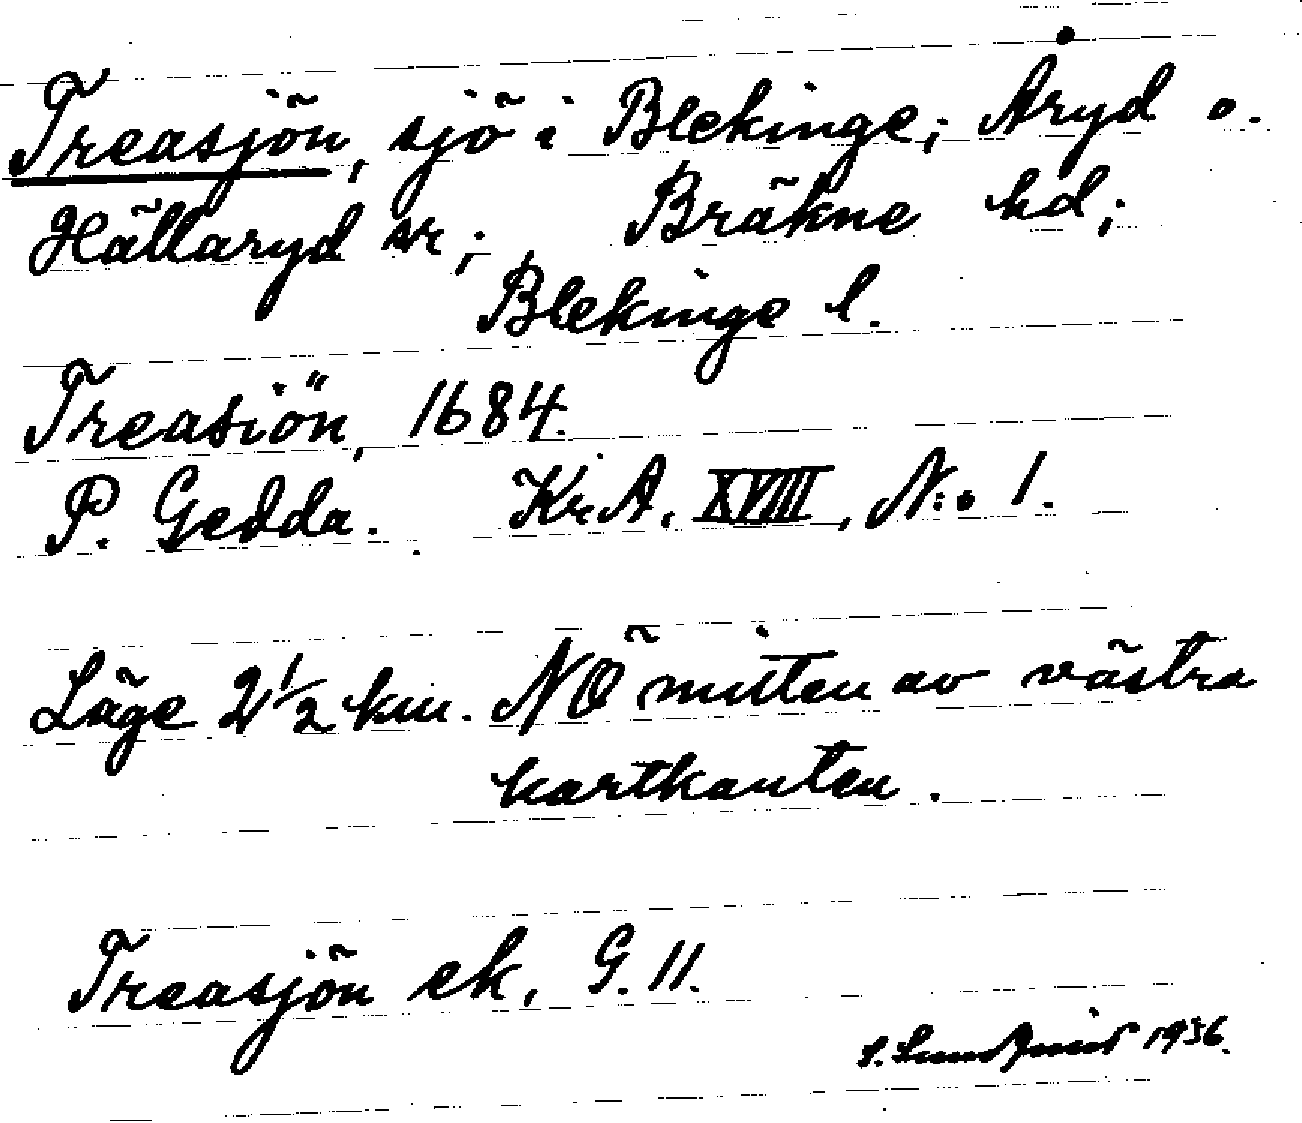 Treasjön, sjö i Blekinge; Åryd o.
Hällaryd sr; Bräkne hd;
Blekinge l.
Treasiön, 1684.
P. Gedda. Kr.A. XVIII, N:o 1.
Läge 2 1/2 km. NÖ mitten av västra
kartkanten.
Treasjön ek. G. 11.
S. Lundqvist 1936.